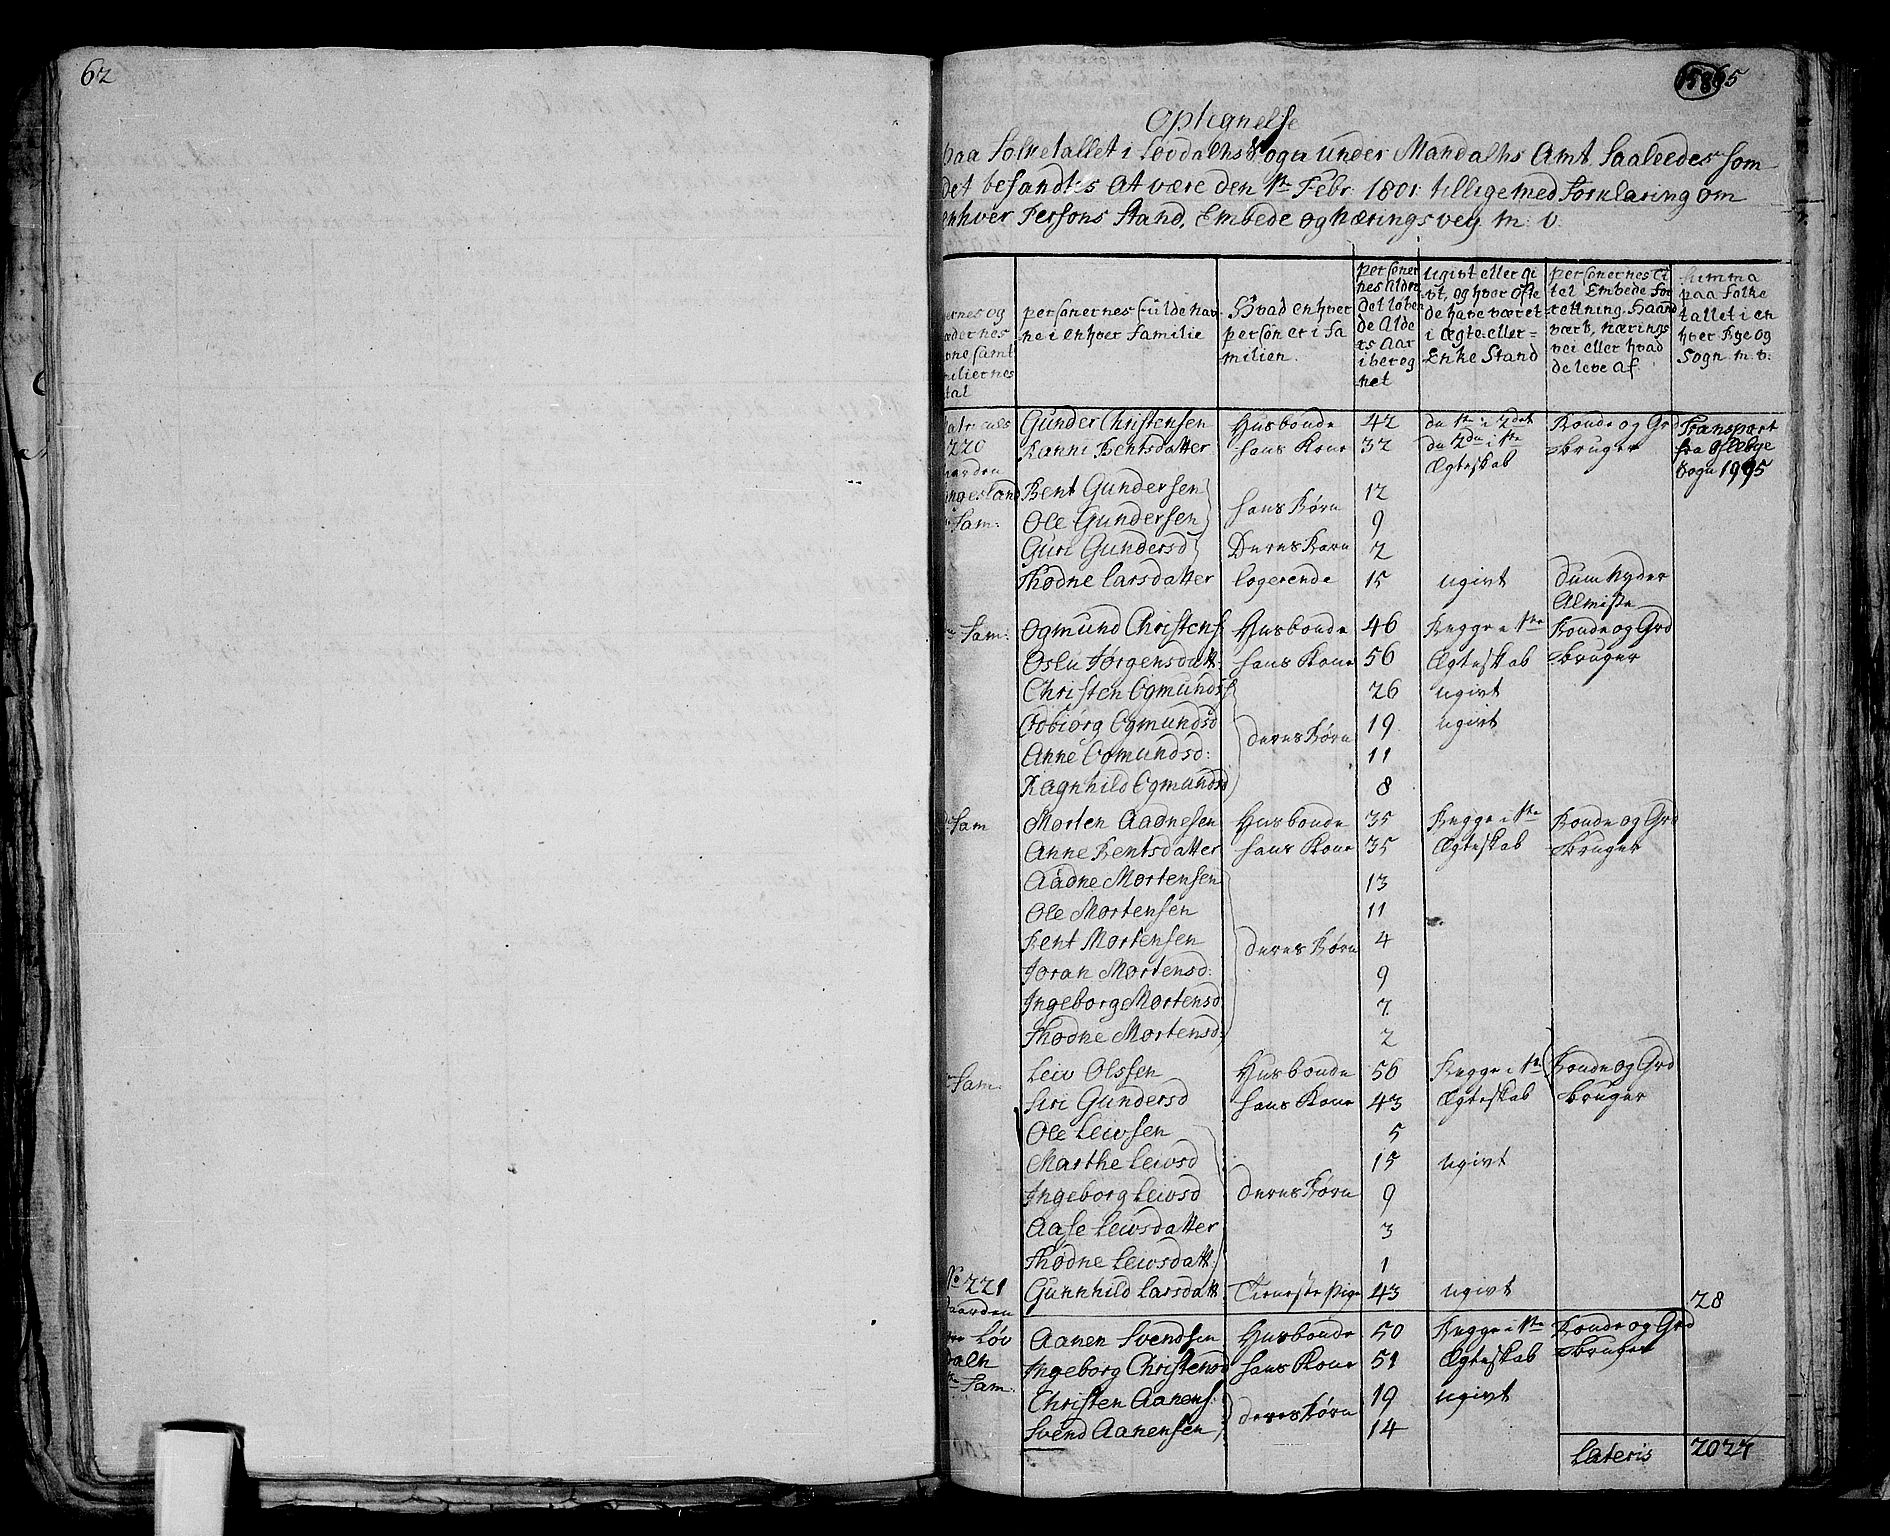 62
158 65
Optegnelse
paa Folketallet i Løvdalhs Sogn under Mandalhs Amt Saaledes som
det befandtes at være den 1te Febr: 1801 tillige med Forklaring om
enhver Persons Stand, Embede og Nærings vej m: v.
personernes fulde nav
ne i enhver Familie
Hvad enhver
person er i Fa
milien.
personer
nes Alder
det løben
de Alde
rs Aar
ibereg
net
ugivt eller gi
vt, og hvor ofte
de have været
i Ægte eller
Enke Stand
personernes Ti
tel Embede For
rettning, Haand
værk, nærings
vei eller hvad
de leve af
Summa
paa Folke
tallet i en
hver Bye og
Sogn m. v.
220 Gunder Christensen Husbonde 42 du 1te i 2det Bonde og Grd Transport
Ranni Bentsdatter hans Kone 32 du 2du i 1te bruger fra
Ægteskab Sogn 1995
Bent Gundersen 12
Fam: Ole Gundersen hans Børn 9
Guri Gundersd Deres Barn 2
Thodne Larsdatter logerende 15 ugivt
Almisse
Fam: Ogmund Christens Husbonde 46 Begge i 1te Bonde og Grd
Oslu Jørgensdatt: hans Kone 56 Ægteskab bruger
Christen Ogmunds 26 ugivt
Ogmundsd 19 ugivt
deres Børn
Anne Ogmundsd: 11
Ragnhild Ogmundsd 8
Fam Morten Aadnesen Husbonde 35 Begge i 1te Bonde og Grd
Anne Bentsdatter hans Kone 35 Ægteskab bruger
Aadne Mortensen 13
Ole Mortensen 11
Bent Mortensen deres Børn 4
Joran Mortensd: 9
Ingeborg Mortensd 7
Thodne Mortensd: 2
Fam: Leiv Olssen Husbonde 56 Begge i 1te Bonde og Grd
Siri Gundersd hans Kone 43 Ægteskab bruger
Ole Leivsen 5
Marthe Leivsd 15 ugivt
Ingeborg Leivsd deres Børn 9
Aase Leivsdatter 3
Thodne Leivsdatt: 1
No 221 Gunnhild Larsdatt: Tieneste Pige 43 ugivt 28
Løv Aanen Svendsen Husbonde 50 Begge i 1te Bonde og Grd
dalh Ingeborg Christensd hans Kone 51 Ægteskab bruger
Fam: Christen Aanens: 19 ugivt
deres Børn
Svend Aanensen 14
Lateris 2027